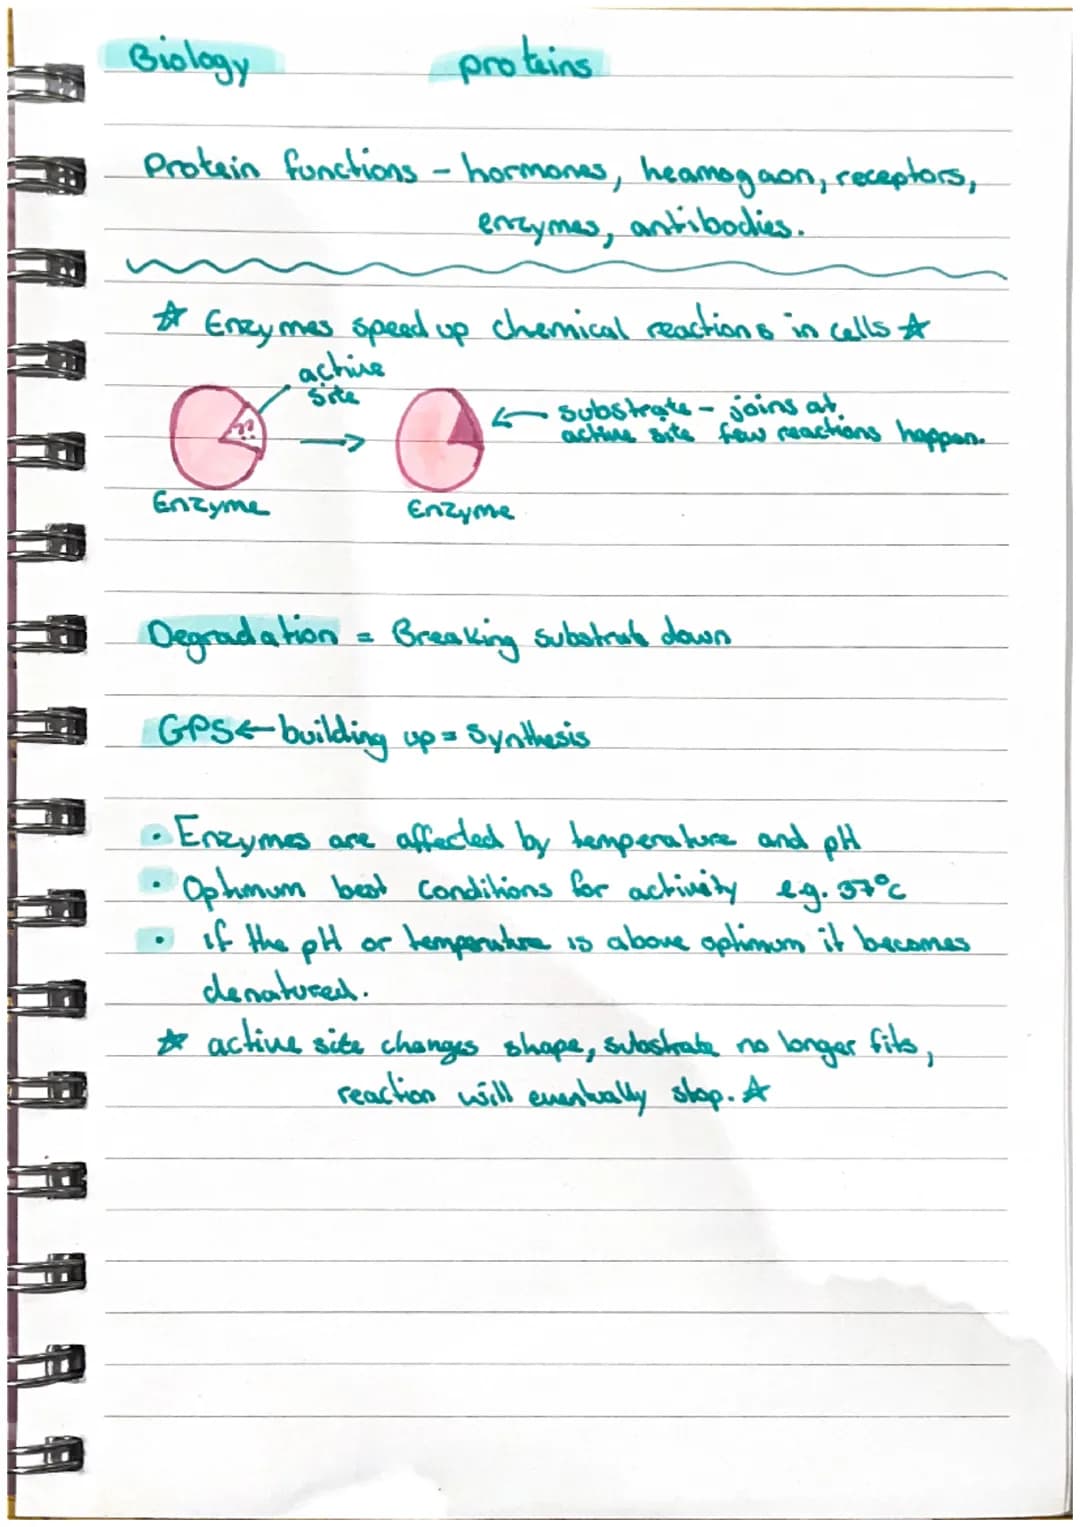 Biology proteins
Protein functions - hormones, heamogaon, receptors,
enzymes, antibodies.
☆ Enzymes speed up chemical reactions in cells ☆
active
site
substrate - joins at
active site few reactions happen.
Enzyme Enzyme
Degradation = Breaking substrate down
GPS ← building up = Synthesis
• Enzymes are affected by temperature and pH
• Optimum best conditions for activity e.g. 37°c
• if the pH or temperature is above optimum it becomes
denatured.
☆ active site changes shape, substrate no longer fits,
reaction will eventually stop. ☆